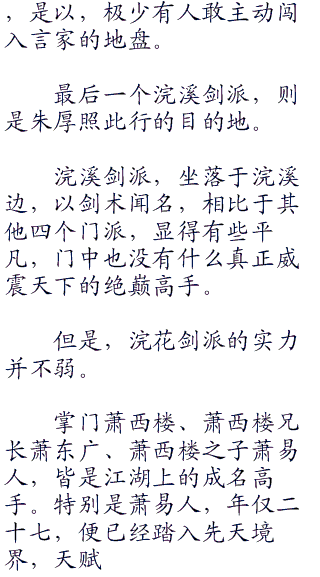 ，是以，极少有人敢主动闯
入言家的地盘。
最后一个浣溪剑派，则
是朱厚照此行的目的地。
浣溪剑派，坐落于浣溪
边，以剑术闻名，相比于其
他四个门派，显得有些平
凡，门中也没有什么真正威
震天下的绝巅高手。
但是，浣花剑派的实力
并不弱。
掌门萧西楼、萧西楼兄
长萧东广、萧西楼之子萧易
人，皆是江湖上的成名高
手。特别是萧易人，年仅二
十七，便已经踏入先天境
界，天赋